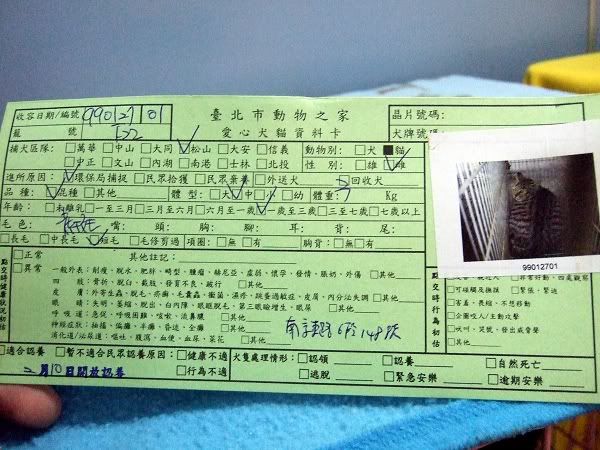 收容日期/編號 990127 01 臺北市動物之家 晶片號碼:
籠 號 T22 愛心犬貓資料卡 犬牌號碼
捕犬區隊: □萬華 □中山 □大同 ☑松山 □大安 □信義 動物別: □犬 ■貓
□中正 □文山 □內湖 □南港 □士林 □北投 性 別: □雄
進所原因: ☑環保局捕捉 □民眾拾獲 □民眾棄養 □外送犬 □回收犬
品 種: ☑混種 □其他 體 型: □大 ☑中 □小 □幼 體重: Kg
年齡: □初離乳 □一至三月 □三至六月 □六月至一歲 □一歲至三歲 □三至七歲 □七歲以上
毛 色: 嘴: 頭: 胸: 腳: 耳: 背: 足:
□長毛 □中長毛 ☑短毛 □毛修剪過 項圈: □無 □有 胸背: □無 □有
點交時健康狀況初估
□正常 其他註記:
□異常 一般外表: 削瘦、脫水、肥胖、畸型、腫瘤、赫尼亞、虛弱、懷孕、發情、脹奶、外傷 □其他
四 肢: 骨折、脫臼、截肢、發育不良、跛行 □其他
皮 膚: 外寄生蟲、脫毛、疥癬、毛囊蟲、黴菌、濕疹、跳蚤過敏症、皮屑、內分泌失調 □其他
眼 睛: 失明、萎縮、脫出、白內障、眼瞼脫毛、第三眼瞼增生、眼屎 □其他
呼 吸 道: 急促、呼吸困難、咳嗽、流鼻膿 □其他
神經症狀: 抽搐、偏癱、半癱、昏迷、全癱 □其他
消化道/泌尿道: 嘔吐、腹瀉、血便、血尿、菜花 □其他
6段148號
99012701
點交時行為初估
□可碰觸及撫摸 □緊張/緊迫
□害羞、畏縮、不想移動
□企圖咬人/主動攻擊
□吠叫、哭號、發出威脅聲
□其他
□適合認養 □暫不適合民眾認養原因: □健康不適 犬隻處理情形: □認領 □認養 □自然死亡
二月10日開放認養 □行為不適 □逃脫 □緊急安樂 □逾期安樂